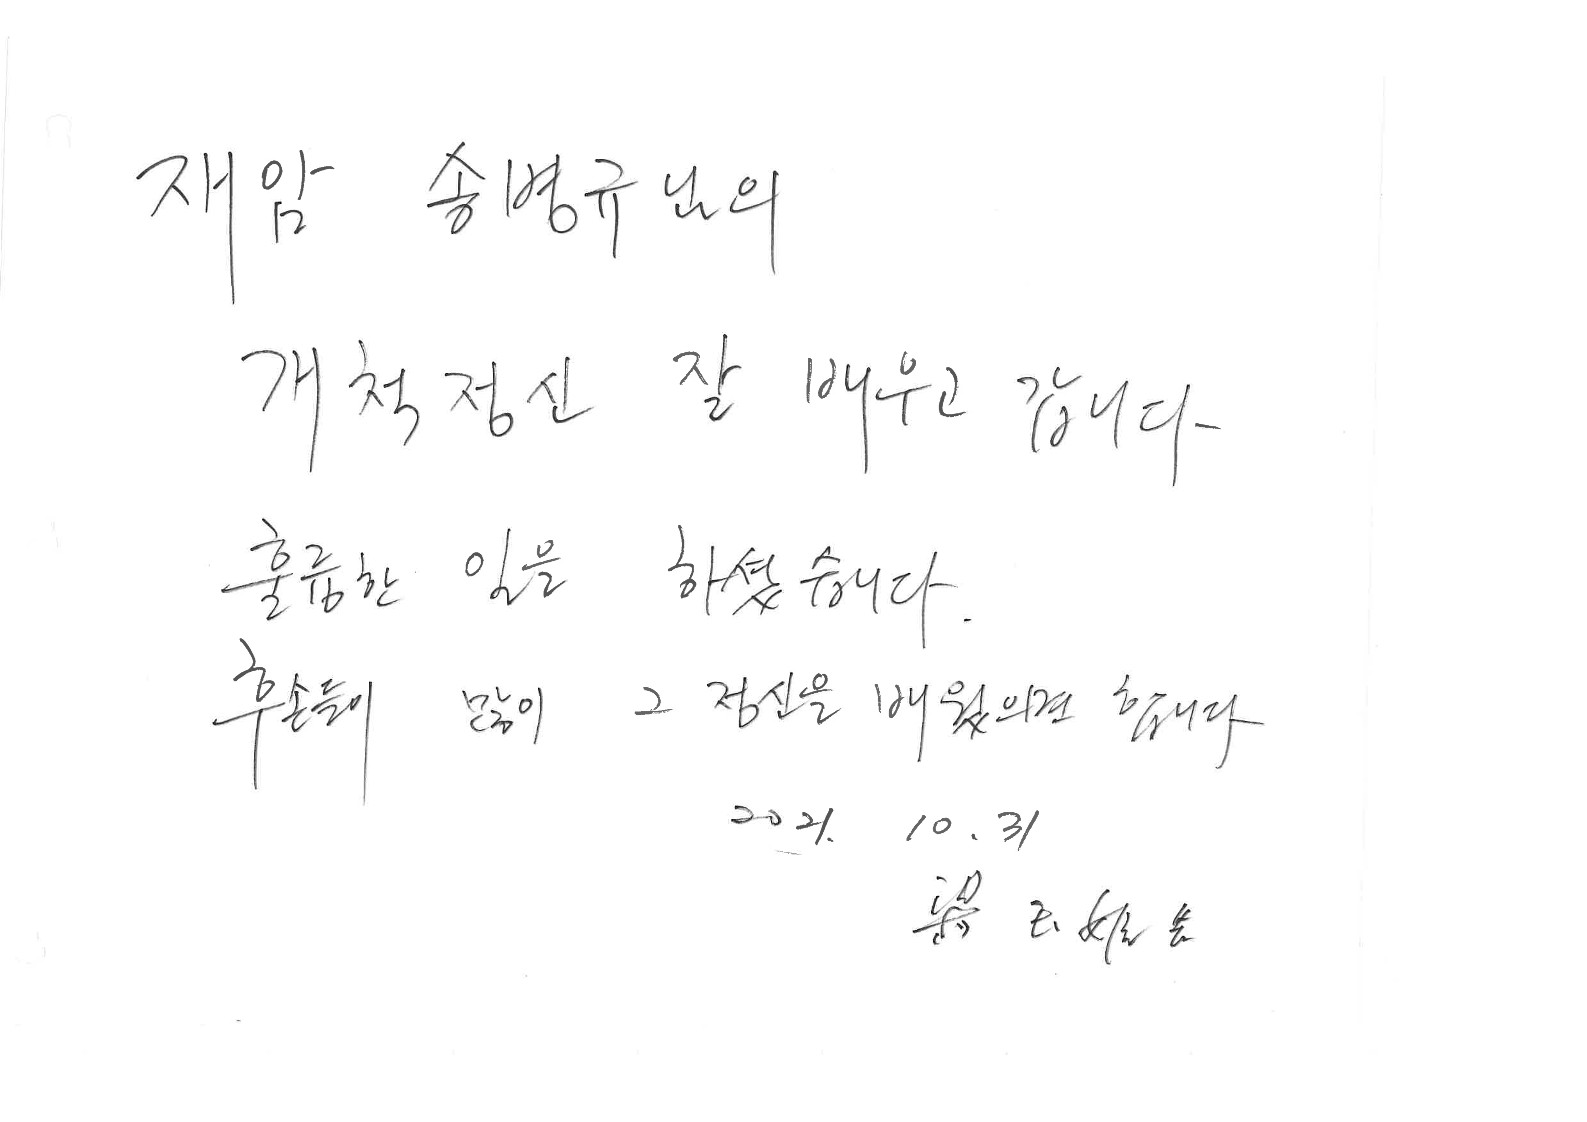 재암 송병규님의
개척정신 잘 배우고 갑니다
훌륭한 일을 하셨습니다.
후손들이 많이 그 정신을 배웠으면 합니다
2021. 10. 31
梁玉